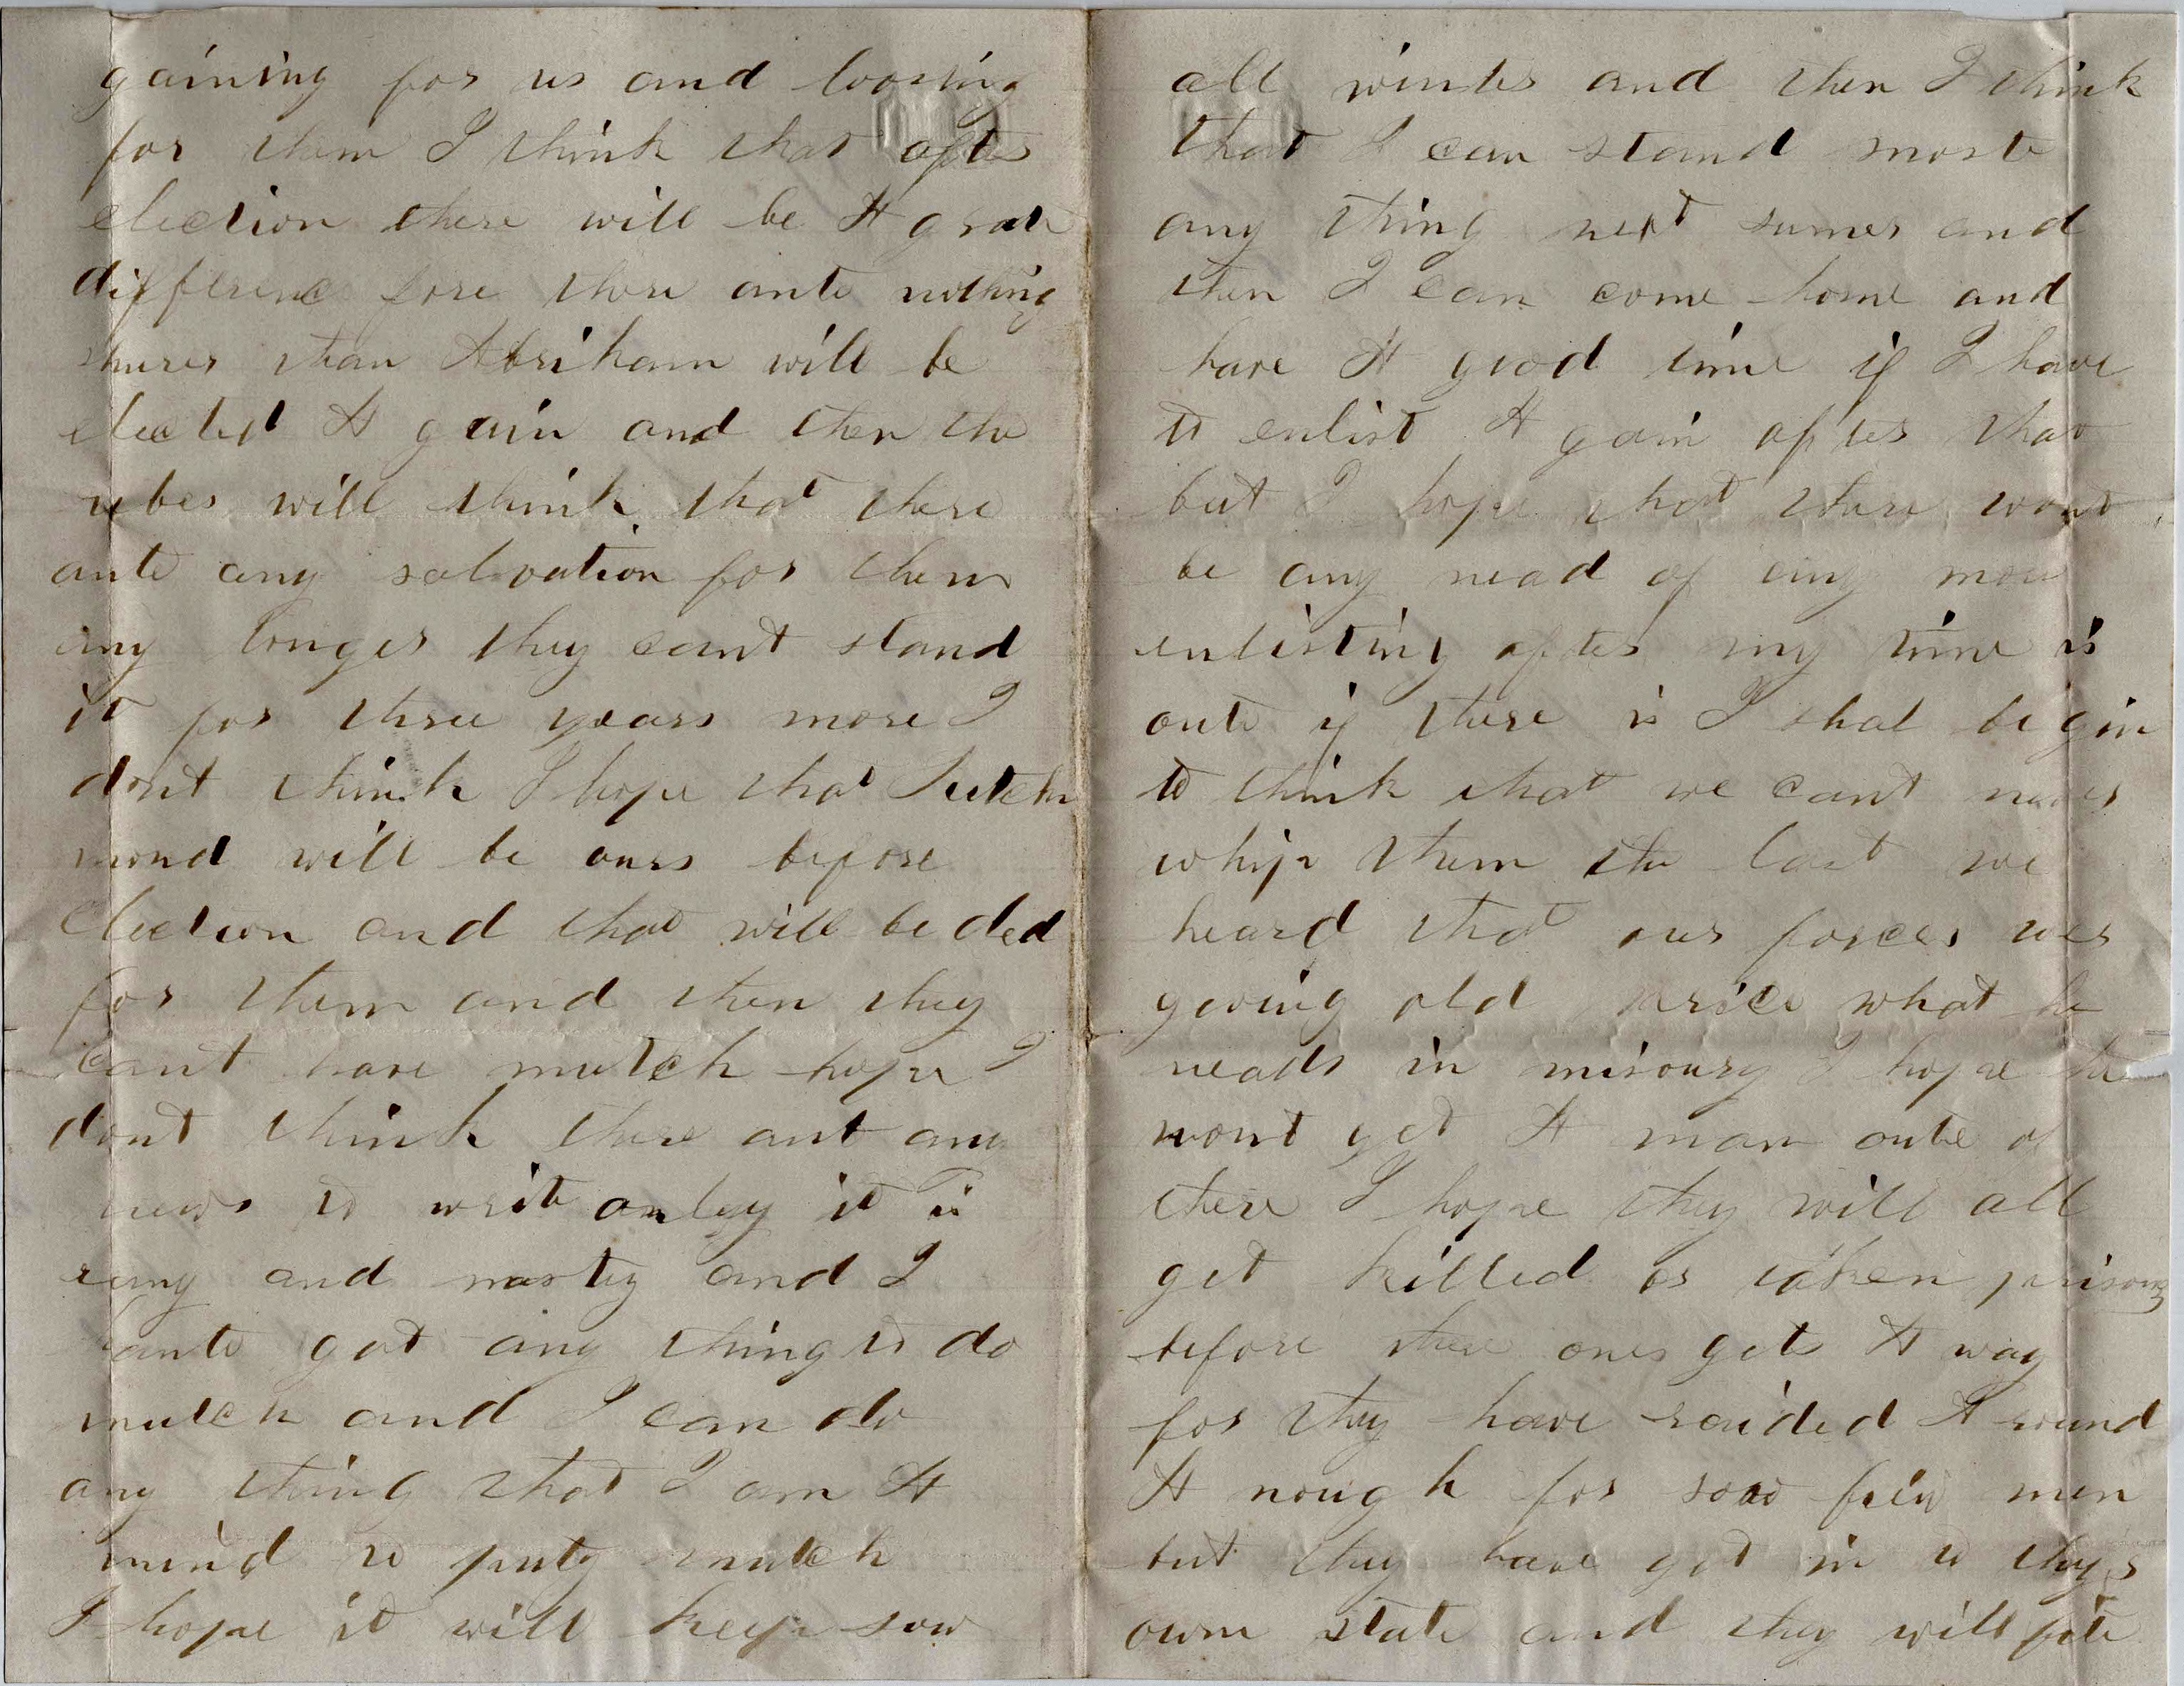 gaining for us and loosing
for them I think that after
election there will be A grate
difference fore there ante nothing
shurer than Abriham will be
elected A gain and then the
rebes will think that there
ante any salvation for them
any longer they cant stand
it for three years more I
dont think I hope that
mond will be ours before
election and that will be ded
for them and then they
cant have mutch hope I
dont think there ant any
news to write onley it is
rany and nasty and I
ante got any thing to do
mutch and I can do
any thing that I am A
mind to puty mutch
I hope it will keep sow
all winter and then I think
that I can stand moste
any thing next sumer and
then I can come home and
have A good time if I have
to enlist A gain after that
but I hope that there wont
be any nead of any more
enlisting after my time is
oute if there is I shal begin
to think that we cant never
whip them the last we
heard that our forces wer
geving old price what he
neads in misoury I hope he
wont get A man oute of
there I hope they will all
get killed or taken
before thee ones gets A way
for they have raided A round
A nough for sow few men
but they have got in to theyr
own state and they will fite